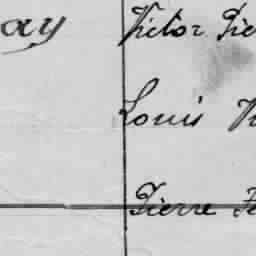 ay Victor Pie
Louis
Pierre Fe